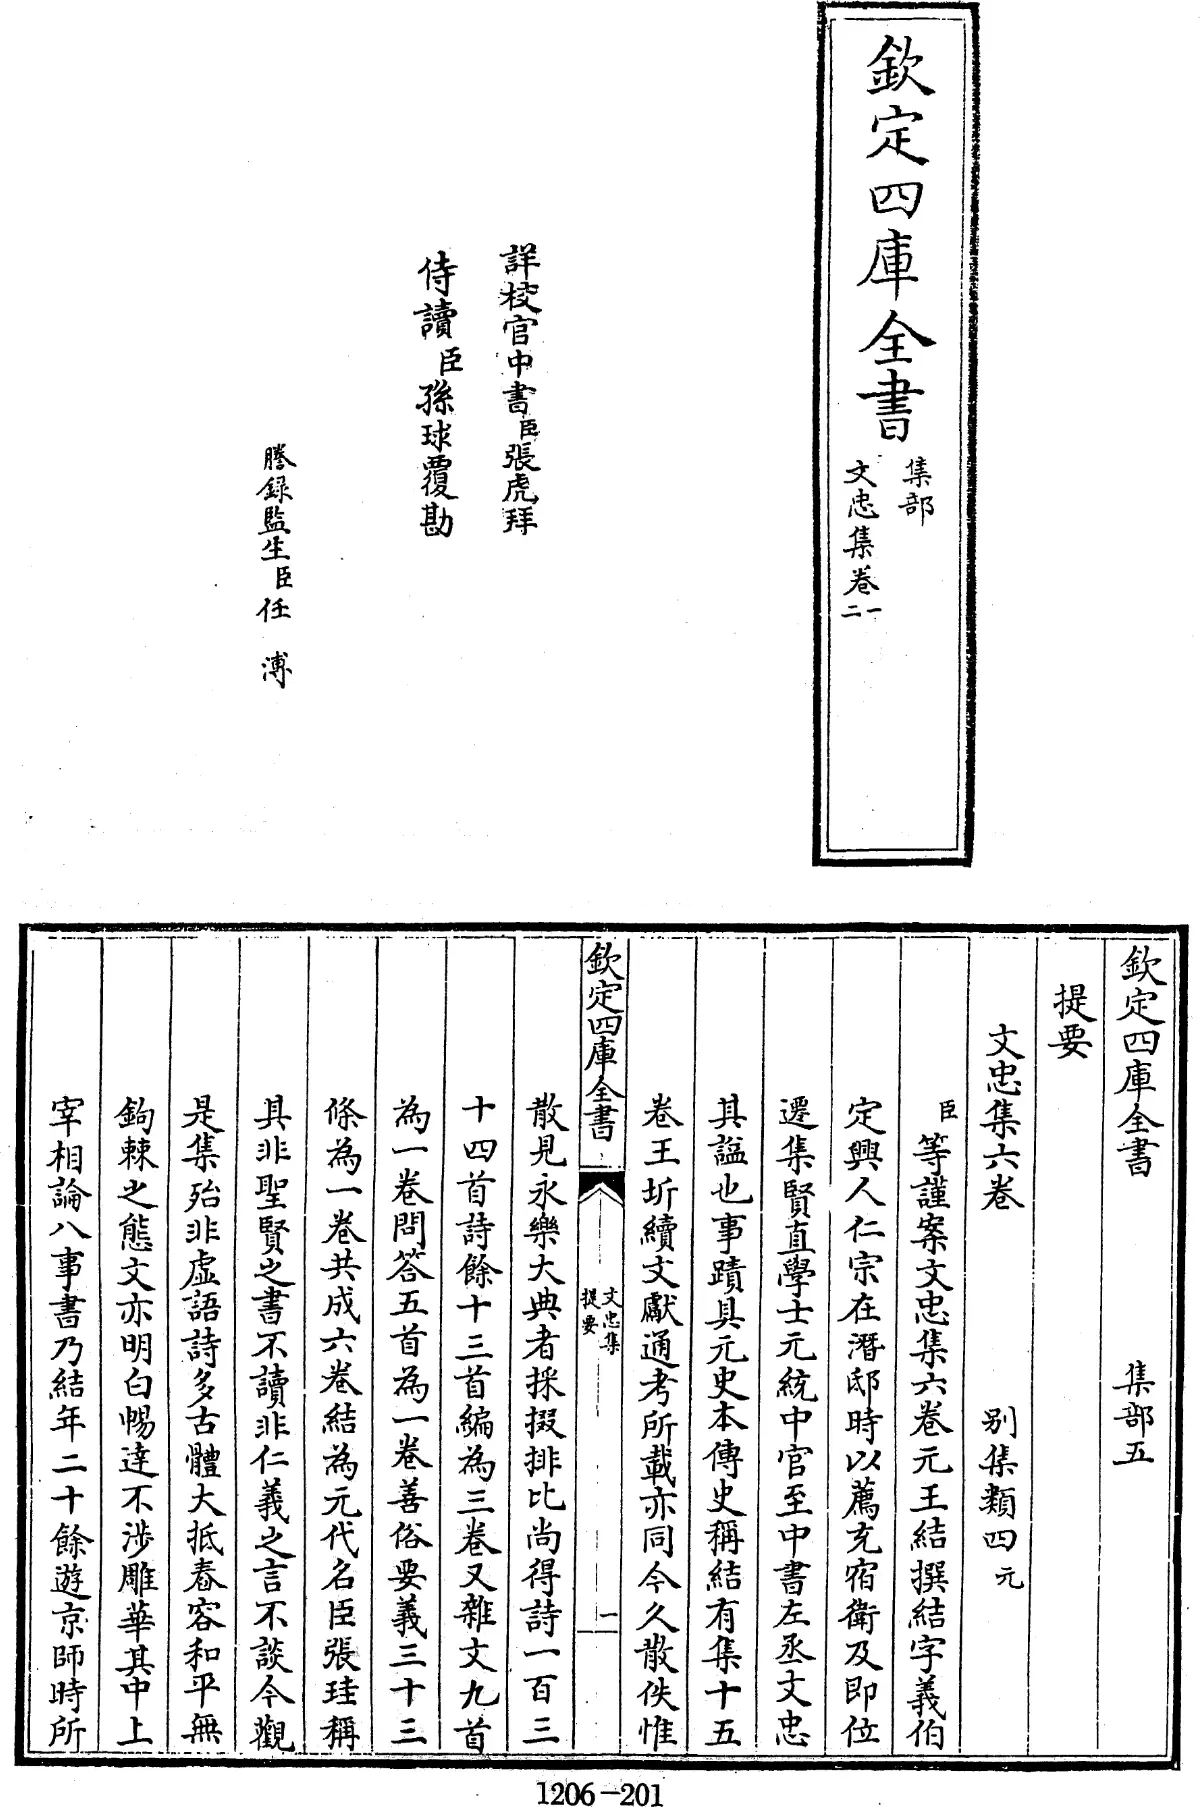 欽定四庫全書
集部
文忠集卷一
二
詳校官中書臣張虎拜
侍讀臣孫球覆勘
謄録監生臣任 溥
欽定四庫全書 集部五
提要
文忠集六卷 别集類四元
臣等謹案文忠集六卷元王結撰結字義伯
定興人仁宗在潛邸時以薦充宿衛及即位
遷集賢直學士元統中官至中書左丞文忠
其謚也事蹟具元史本傳史稱結有集十五
卷王圻續文獻通考所載亦同今久散佚惟
欽定四庫全書
文忠集
提要
一
散見永樂大典者採掇排比尚得詩一百三
十四首詩餘十三首編為三卷又雜文九首
為一卷問答五首為一卷善俗要義三十三
條為一卷共成六卷結為元代名臣張珪稱
其非聖賢之書不讀非仁義之言不談今觀
是集殆非虛語詩多古體大抵舂容和平無
鉤棘之態文亦明白暢達不涉雕華其中上
宰相論八事書乃結年二十餘遊京師時所
1206-201